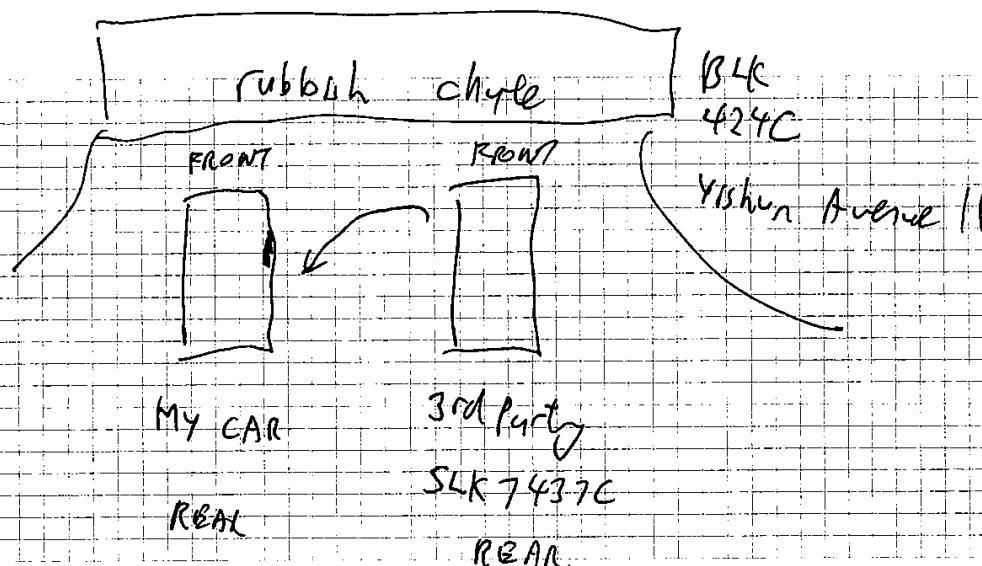 rubbish chute
BLK
424C
Yishun Avenue 11
FRONT FRONT
MY CAR 3rd Party
SLK7437C
REAR
REAR